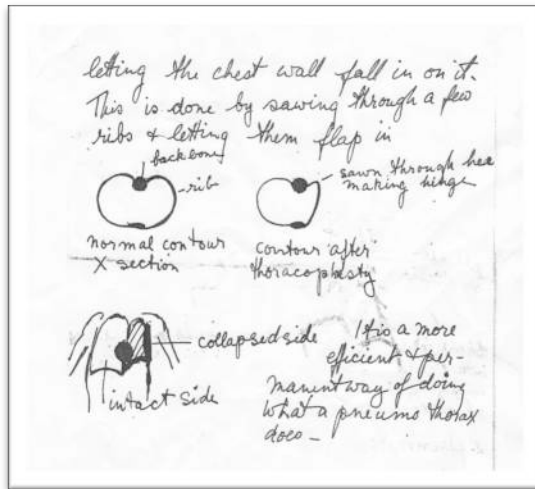 letting the chest wall fall in on it.
This is done by sawing through a few
ribs & letting them flap in
backbone
rib
sawn through here
making hinge
normal contour
X section
contour after
thoracoplasty
collapsed side
intact side
It is a more
efficient & per-
manent way of doing
what a pneumo thorax
does -